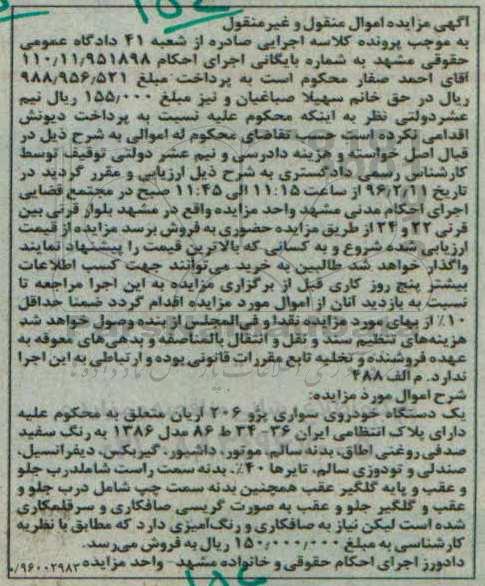 آگهی مزایده اموال منقول و غیرمنقول
به موجب پرونده کلاسه اجرایی صادره از شعبه ۴۱ دادگاه عمومی
حقوقی مشهد به شماره بایگانی اجرای احکام ۱۱۰/۱۱/۹۵۱۸۹۸
آقای احمد صفار محکوم است به پرداخت مبلغ ۹۸۸/۹۵۶/۵۲۱
ریال در حق خانم سهیلا صباغیان و نیز مبلغ ۱۵۵/۰۰۰ ریال نیم
عشردولتی نظر به اینکه محکوم علیه نسبت به پرداخت دیونش
اقدامی نکرده است حسب تقاضای محکوم له اموالی به شرح ذیل در
قبال اصل خواسته و هزینه دادرسی و نیم عشر دولتی توقیف توسط
کارشناس رسمی دادگستری به شرح ذیل ارزیابی و مقرر گردید در
تاریخ ۹۶/۲/۱۱ از ساعت ۱۱:۱۵ الی ۱۱:۴۵ صبح در مجتمع قضایی
اجرای احکام مدنی مشهد واحد مزایده واقع در مشهد بلوار قرنی بین
قرنی ۲۲ و ۲۴ از طریق مزایده حضوری به فروش برسد مزایده از قیمت
ارزیابی شده شروع و به کسانی که بالاترین قیمت را پیشنهاد نمایند
واگذار خواهد شد طالبین به خرید می‌توانند جهت کسب اطلاعات
بیشتر پنج روز کاری قبل از برگزاری مزایده به این اجرا مراجعه تا
نسبت به بازدید آنان از اموال مورد مزایده اقدام گردد ضمنا حداقل
۱۰٪ از بهای مورد مزایده نقدا و فی‌المجلس از بنده وصول خواهد شد
هزینه‌های تنظیم سند و نقل و انتقال بالمناصفه و بدهی‌های معوقه به
عهده فروشنده و تخلیه تابع مقررات قانونی بوده و ارتباطی به این اجرا
ندارد. م الف ۴۸۸
شرح اموال مورد مزایده:
یک دستگاه خودروی سواری پژو ۲۰۶ آریان متعلق به محکوم علیه
دارای پلاک انتظامی ایران ۳۶-۳۴۰ ط ۸۶ مدل ۱۳۸۶ به رنگ سفید
صدفی روغنی اطاق، بدنه سالم، موتور، داشپور، گیربکس، دیفرانسیل،
صندلی و تودوزی سالم، تایرها ۴۰٪، بدنه سمت راست شاملدرب جلو
و عقب و پایه گلگیر عقب همچنین بدنه سمت چپ شامل درب جلو و
عقب و گلگیر جلو و عقب به صورت گریسی صافکاری و سرقلمکاری
شده است لیکن نیاز به صافکاری و رنگ‌آمیزی دارد که مطابق با نظریه
کارشناسی به مبلغ ۱۵۰/۰۰۰/۰۰۰ ریال به فروش می‌رسد.
دادورز اجرای احکام حقوقی و خانواده مشهد - واحد مزایده ۹۶۰۰۲۹۸۲/ب